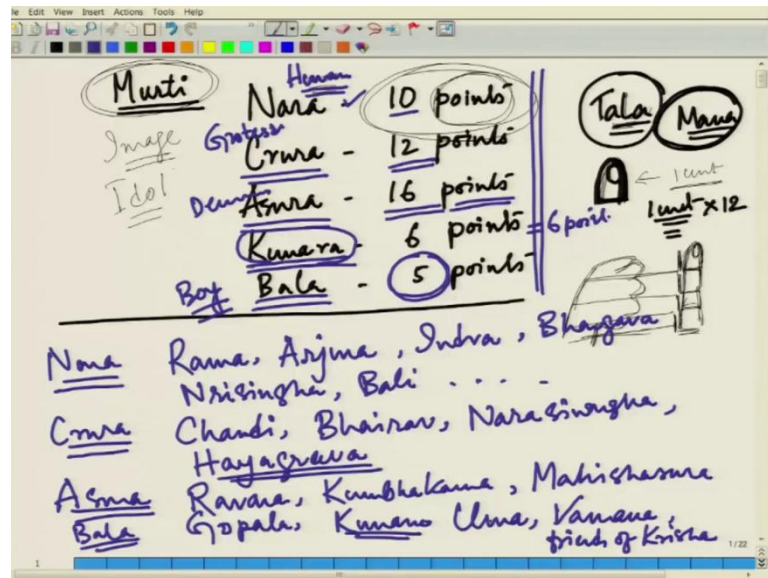 Edit View Insert Actions Tools Help
Murti
Image
Idol
Human
Nara 10 points
Crura - 12 points
Demon
Asura - 16 points
Kumara - 6 points = 6 point.
Boy Bala - 5 points
Tala Mana
1 unit
1 unit x 12
Nara Rama, Arjuna, Indra, Bhargava
Nrisingha, Bali . . . .
Crura Chandi, Bhairav, Narasimgha,
Hayagrava
Asura Ravana, Kumbhakarna, Mahishasura
Bala Gopala, Kumara Uma, Vamana,
friends of Krisha
1/22
1